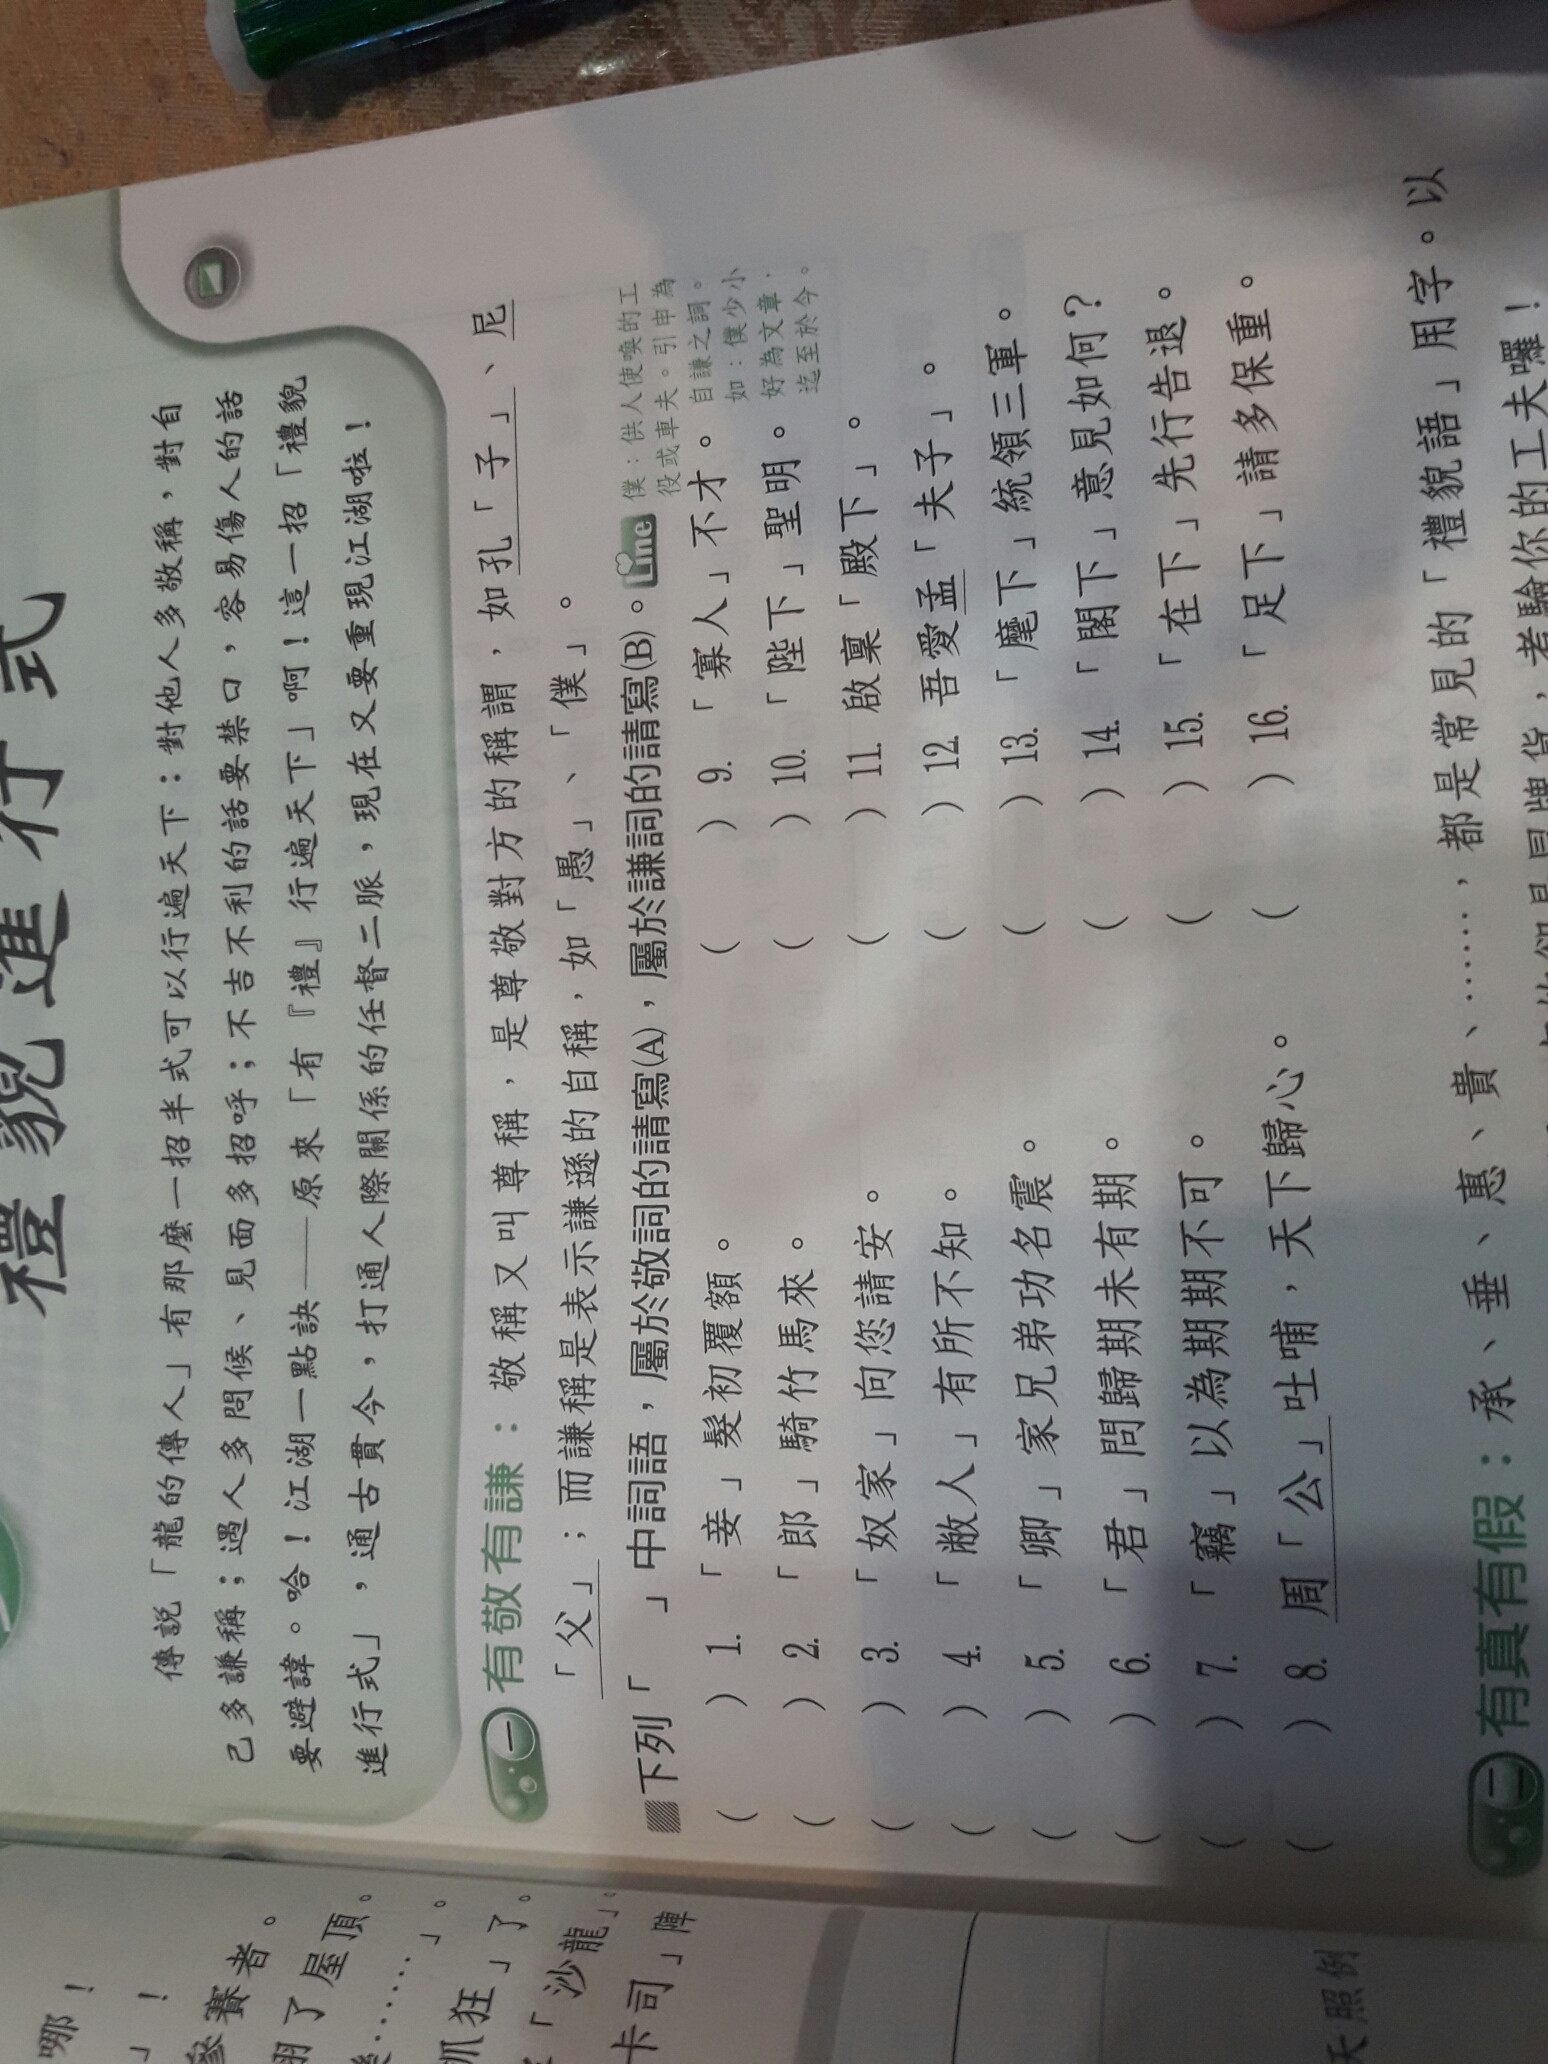 禮貌進行式
傳說「龍的傳人」有那麼一招半式可以行遍天下：對他人多敬稱，對自
己多謙稱；遇人多問候、見面多招呼；不吉不利的話要禁口，容易傷人的話
要避諱。哈！江湖一點訣——原來「有『禮』行遍天下」啊！這一招「禮貌
進行式」，通古貫今，打通人際關係的任督二脈，現在又要重現江湖啦！
一 有敬有謙：敬稱又叫尊稱，是尊敬對方的稱謂，如孔「子」、尼
「父」；而謙稱是表示謙遜的自稱，如「愚」、「僕」。
下列「 」中詞語，屬於敬詞的請寫(A)，屬於謙詞的請寫(B)。
Line
僕：供人使喚的工
役或車夫。引申為
自謙之詞。
如：僕少小
好為文章，
迄至於今。
( ) 1.「妾」髮初覆額。
( ) 2.「郎」騎竹馬來。
( ) 3.「奴家」向您請安。
( ) 4.「敝人」有所不知。
( ) 5.「卿」家兄弟功名震。
( ) 6.「君」問歸期未有期。
( ) 7.「竊」以為期期不可。
( ) 8. 周「公」吐哺，天下歸心。
( ) 9.「寡人」不才。
( ) 10.「陛下」聖明。
( ) 11. 啟稟「殿下」。
( ) 12. 吾愛孟「夫子」。
( ) 13.「麾下」統領三軍。
( ) 14.「閣下」意見如何？
( ) 15.「在下」先行告退。
( ) 16.「足下」請多保重。
二 有真有假：承、垂、惠、貴、……，都是常見的「禮貌語」用字。以
冒牌貨，考驗你的工夫囉！
哪！
」！
參賽者。
了屋頂。
……」。
抓狂」了。
「沙龍」。
卡司」陣
天照例